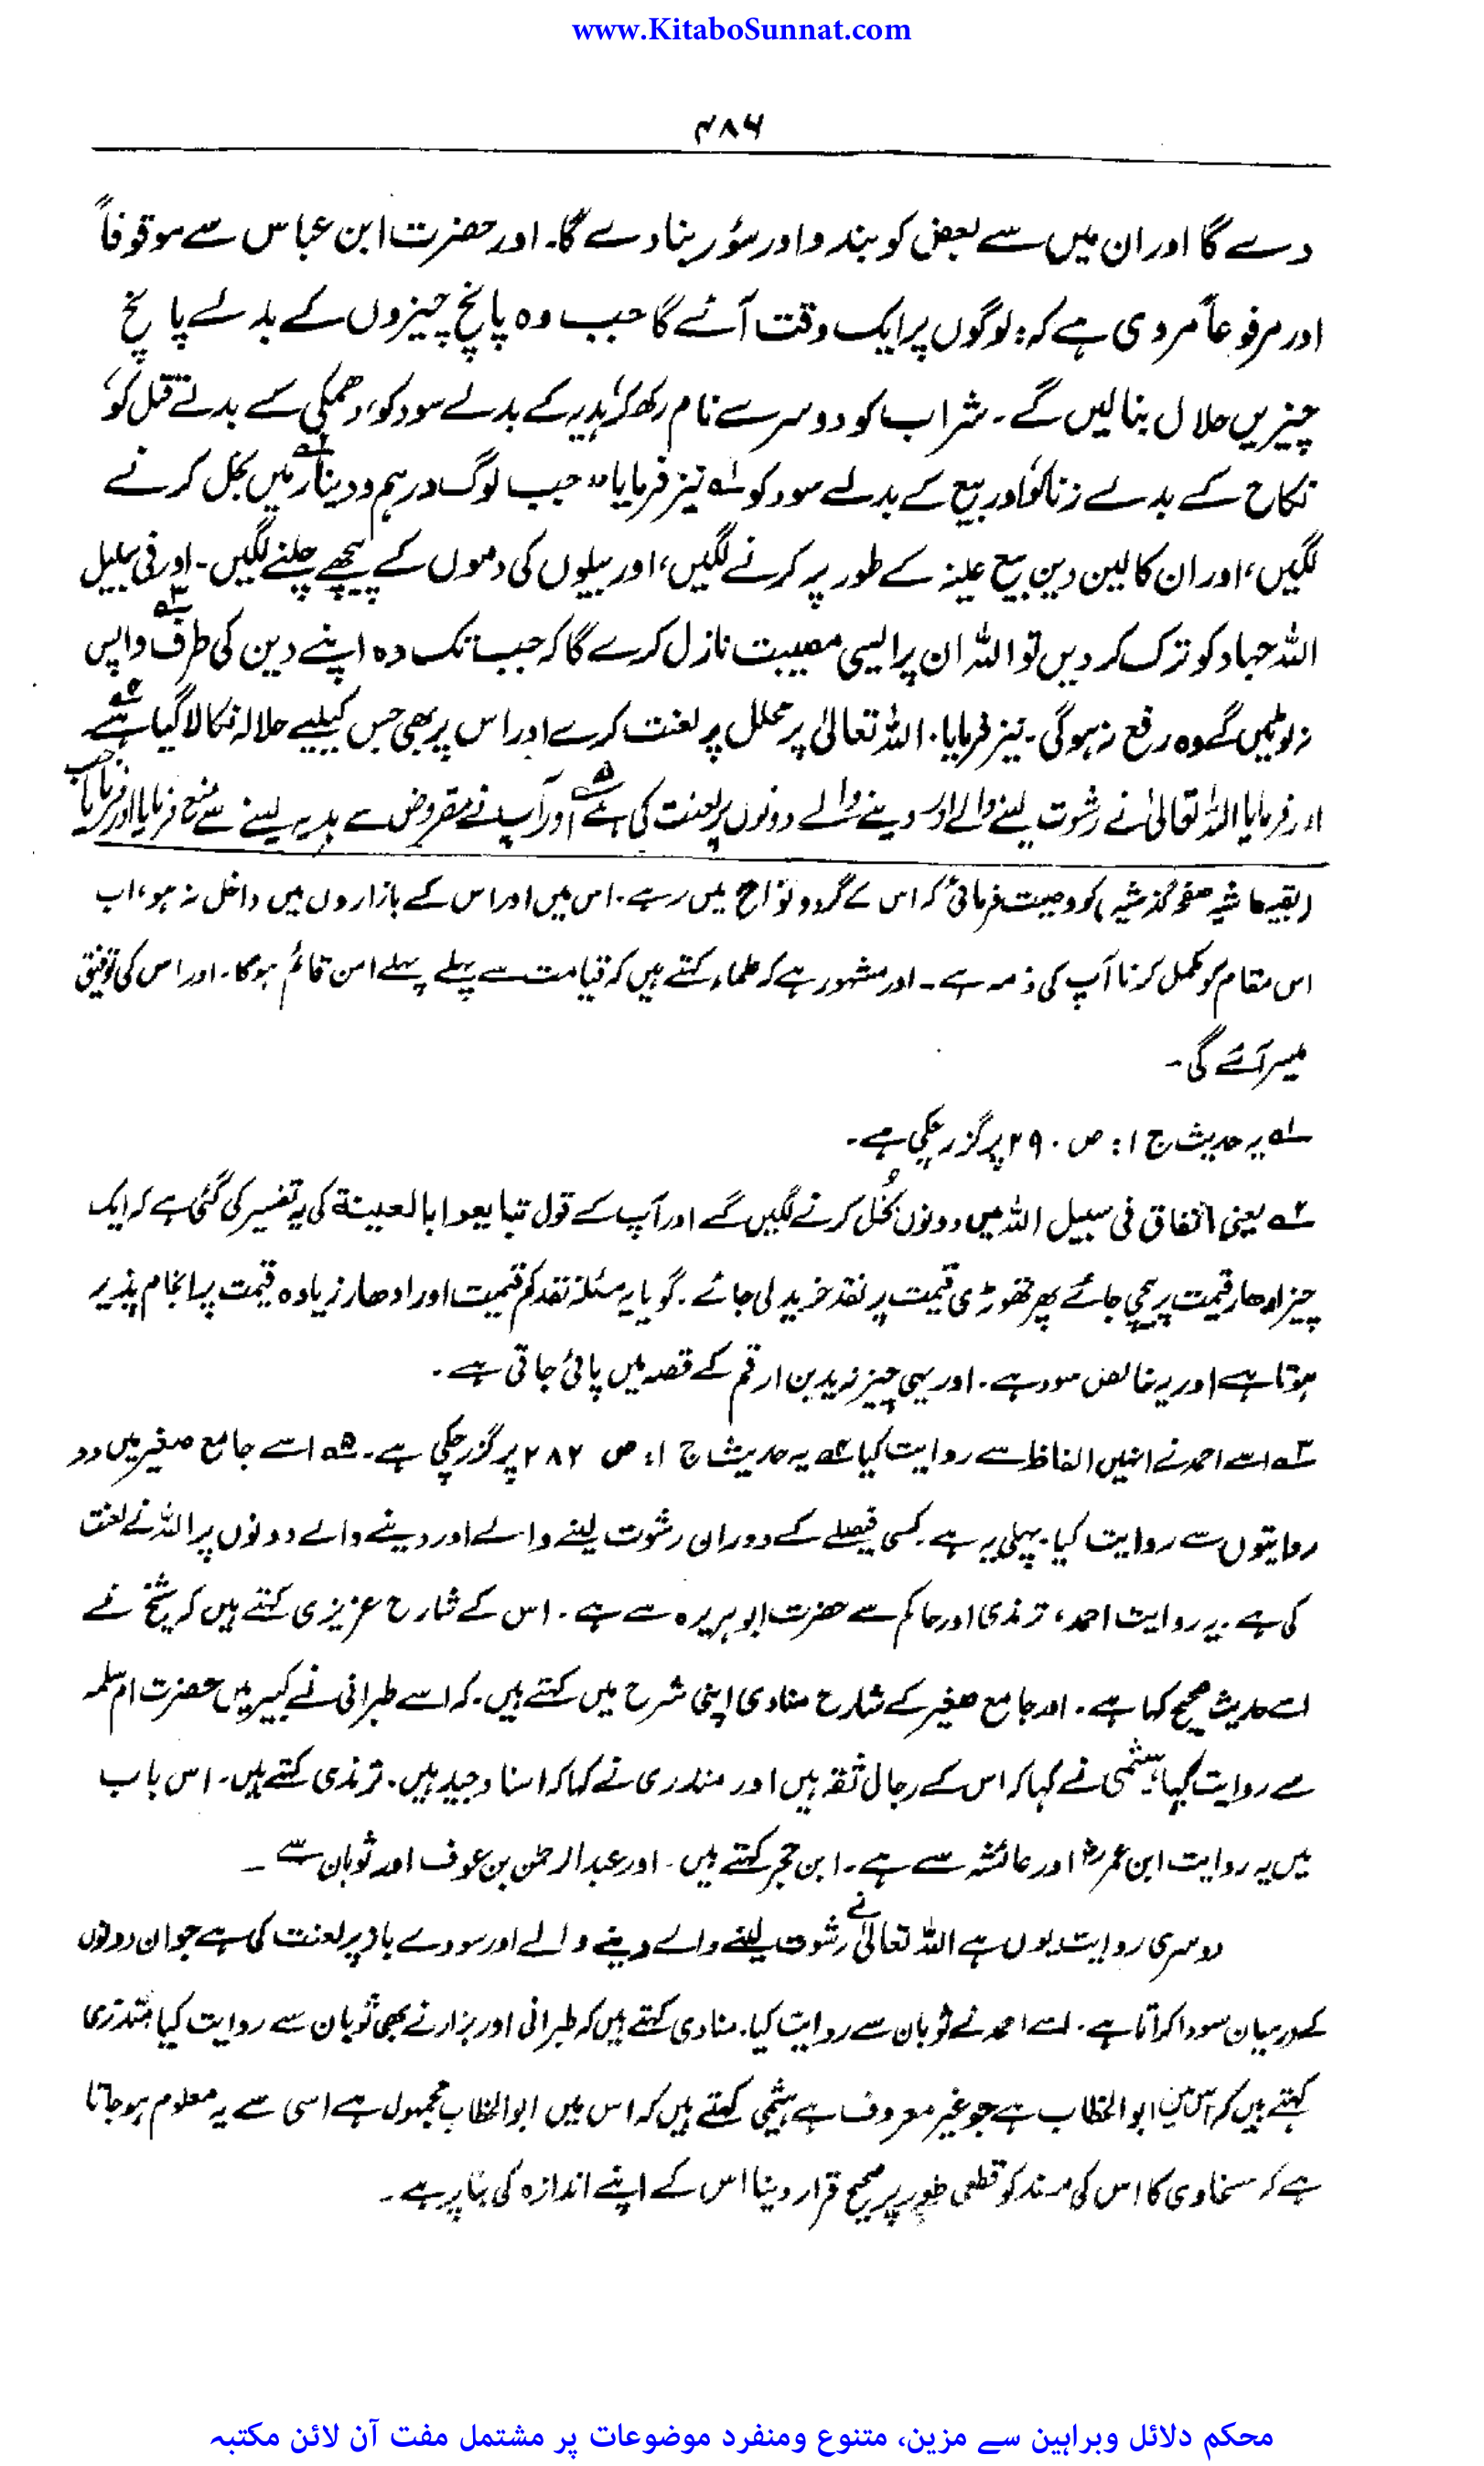 www.KitaboSunnat.com
۴۸۶
دے گا اور ان میں سے بعض کو بندر اور سؤر بنا دے گا۔ اور حضرت ابن عباس سے موقوفاً
اور مرفوعاً مروی ہے کہ: لوگوں پر ایک وقت آئے گا جب وہ پانچ چیزوں کے بدلے پانچ
چیزیں حلال بنالیں گے۔ شراب کو دوسرے نام رکھ کر، ہدیہ کے بدلے سود کو، دھمکی کے بدلے قتل کو،
نکاح کے بدلے زنا کو، اور بیع کے بدلے سود کو ۱؎ نیز فرمایا" جب لوگ درہم و دینار میں بخل کرنے ۲؎
لگیں، اور ان کا لین دین بیع عینہ کے طور پر کرنے لگیں، اور بیلوں کی دموں کے پیچھے چلنے لگیں۔ اور فی سبیل
اللہ جہاد کو ترک کر دیں تو اللہ ان پر ایسی مصیبت نازل کرے گا کہ جب تک وہ اپنے دین کی طرف ۳؎ واپس
نہ لوٹیں گے وہ رفع نہ ہوگی۔ نیز فرمایا۔ اللہ تعالیٰ پر محلل پر لعنت کرے اور اس پر بھی جس کیلیے حلالہ نکالا گیا ہے ۴؎
اور فرمایا اللہ تعالیٰ نے رشوت لینے والے اور دینے والے دونوں پر لعنت کی ہے ۵؎ اور آپ نے مقروض سے ہدیہ لینے سے منع فرمایا اور فرمایا جب
(بقیہ حاشیہ صفحہ گذشتہ) کو وصیت فرمائی کہ اس کے گرد و نواح میں رہے۔ اس میں اور اس کے بازاروں میں داخل نہ ہو، اب
اس مقام کو مکمل کرنا آپ کی ذمہ ہے۔ اور مشہور ہے کہ علماء کہتے ہیں کہ قیامت سے پہلے پہلے امن قائم ہوگا۔ اور اس کی توفیق
میسر آئے گی۔
۱؎ یہ حدیث ج ۱: ص ۲۹۰ پر گزر چکی ہے۔
۲؎ یعنی انفاق فی سبیل اللہ میں دونوں بُخل کرنے لگیں گے اور آپ کے قول تبایعوا بالعینۃ کی یہ تفسیر کی گئی ہے کہ ایک
چیز ادھار قیمت پر بیچی جائے پھر تھوڑی قیمت پر نقد خرید لی جائے۔ گویا یہ مسئلہ نقد کم قیمت اور ادھار زیادہ قیمت پر انجام پذیر
ہوتا ہے اور یہ خالص سود ہے۔ اور یہی چیز زید بن ارقم کے قصہ میں پائی جاتی ہے۔
۳؎ اسے احمد نے انہیں الفاظ سے روایت کیا ۴؎ یہ حدیث ج ۱: ص ۲۸۲ پر گزر چکی ہے۔ ۵؎ اسے جامع صغیر میں دو
روایتوں سے روایت کیا۔ پہلی یہ ہے۔ کسی فیصلے کے دوران رشوت لینے والے اور دینے والے دونوں پر اللہ نے لعنت
کی ہے۔ یہ روایت احمد، ترمذی اور حاکم سے حضرت ابوہریرہ سے ہے۔ اس کے شارح عزیزی کہتے ہیں کہ شیخ نے
اسے حدیث صحیح کہا ہے۔ اور جامع صغیر کے شارح مناوی اپنی شرح میں کہتے ہیں۔ کہ اسے طبرانی نے کبیر میں حضرت ام سلمہ
سے روایت کیا، ہیثمی نے کہا کہ اس کے رجال ثقہ ہیں اور منذری نے کہا کہ اسناد جید ہیں۔ ترمذی کہتے ہیں۔ اس باب
میں یہ روایت ابن عمرؓ اور عائشہ سے ہے۔ ابن حجر کہتے ہیں۔ اور عبدالرحمٰن بن عوف اور ثوبان سے۔
دوسری روایت یوں ہے اللہ تعالیٰ نے رشوت لینے والے دینے والے اور سودے باز پر لعنت کی ہے جو ان دونوں
کے درمیان سودا کراتا ہے۔ اسے احمد نے ثوبان سے روایت کیا۔ مناوی کہتے ہیں کہ طبرانی اور بزار نے بھی ثوبان سے روایت کیا، منذری
کہتے ہیں کہ اس میں ابو الخطاب ہے جو غیر معروف ہے ہیثمی کہتے ہیں کہ اس میں ابوالخطاب مجہول ہے اسی سے یہ معلوم ہو جاتا
ہے کہ سخاوی کا اس کی سند کو قطعی طور پر صحیح قرار دینا اس کے اپنے اندازہ کی بنا پر ہے۔
محکم دلائل وبراہین سے مزین، متنوع ومنفرد موضوعات پر مشتمل مفت آن لائن مکتبہ